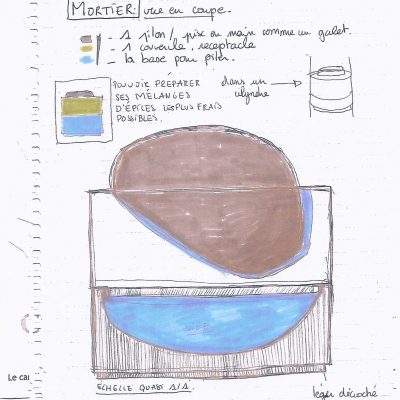 MORTIER: vue en coupe.
- 1 pilon / prise en main comme un galet.
- 1 couvercle, receptacle
- la base pour piler.
POUVOIR PRÉPARER
SES MÉLANGES
D'ÉPICES LES PLUS FRAIS
POSSIBLES.
dans un
cylindre
ECHELLE QUASI 1/1.
Le car
léger décroché